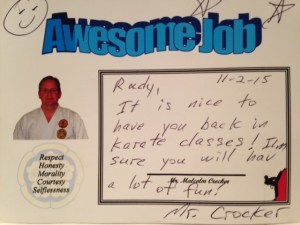 Awesome Job
Rudy, 11-2-15
It is nice to
have you back in
karate classes! I'm
sure you will hav
Mr. Malcolm Crocker
a lot of fun!
Mr. Crocker
Respect
Honesty
Morality
Courtesy
Selflessness